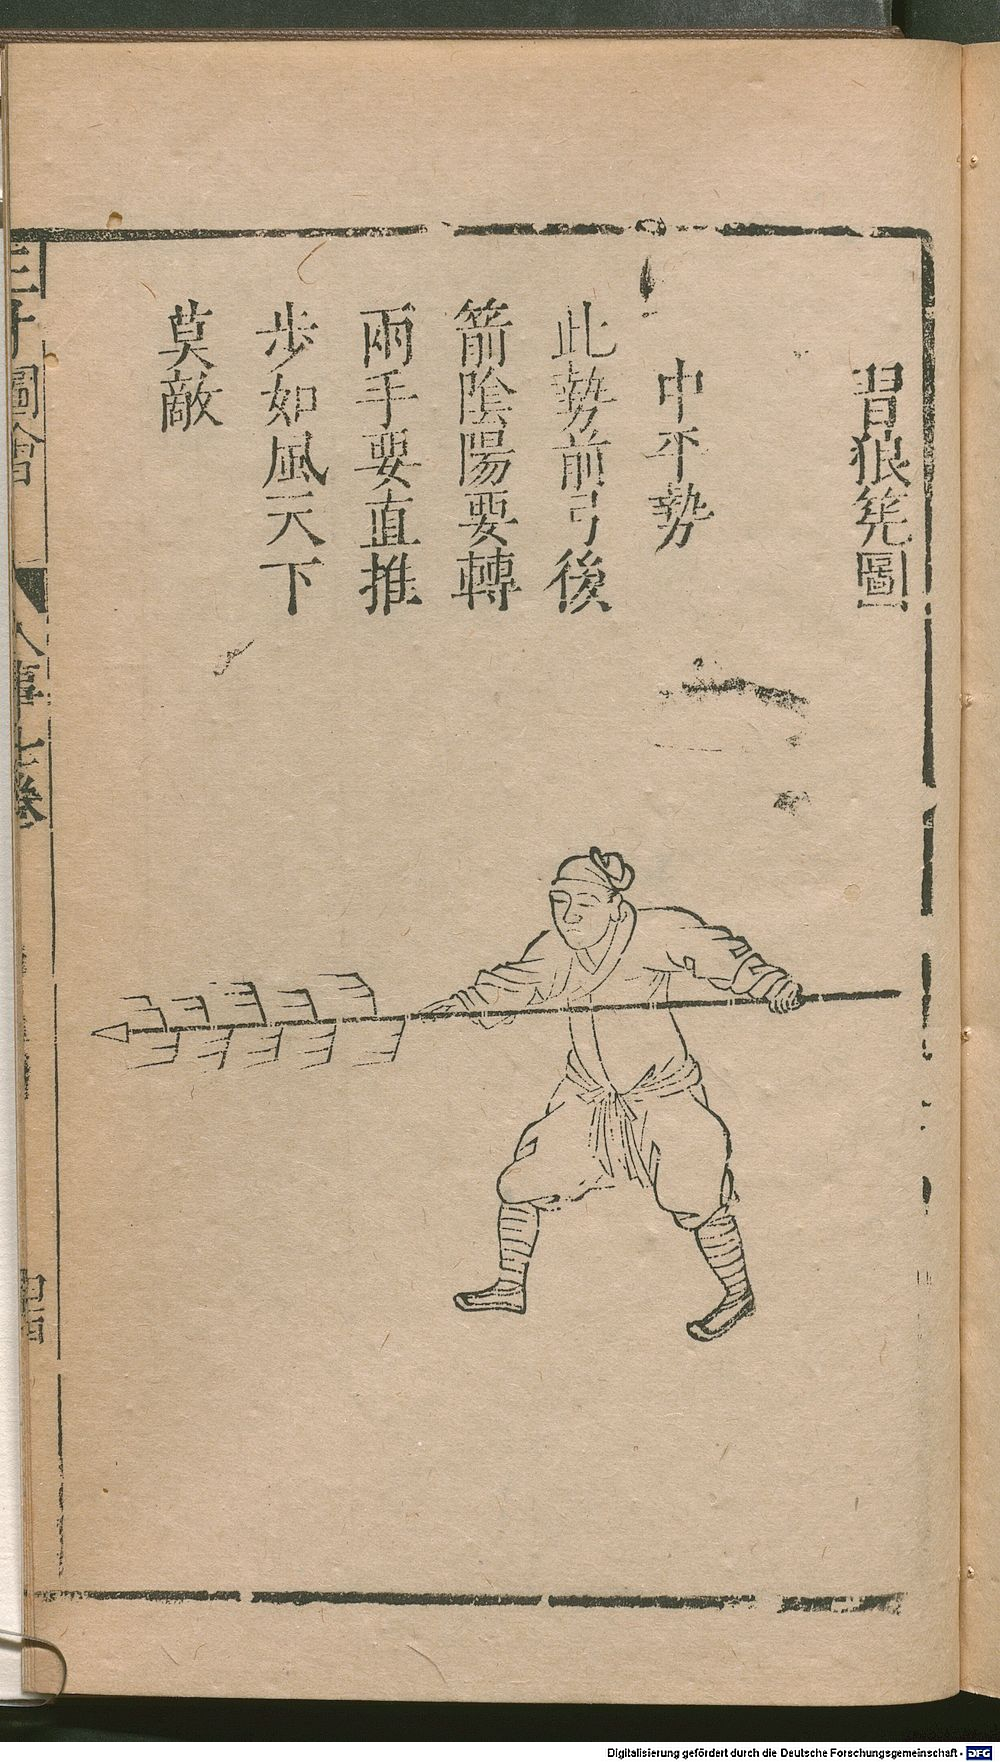 習狼筅圖
中平勢
此勢前弓後
箭陰陽要轉
兩手要直推
步如風天下
莫敵
三才圖會
人事七卷
Digitalisierung gefördert durch die Deutsche Forschungsgemeinschaft - DFG